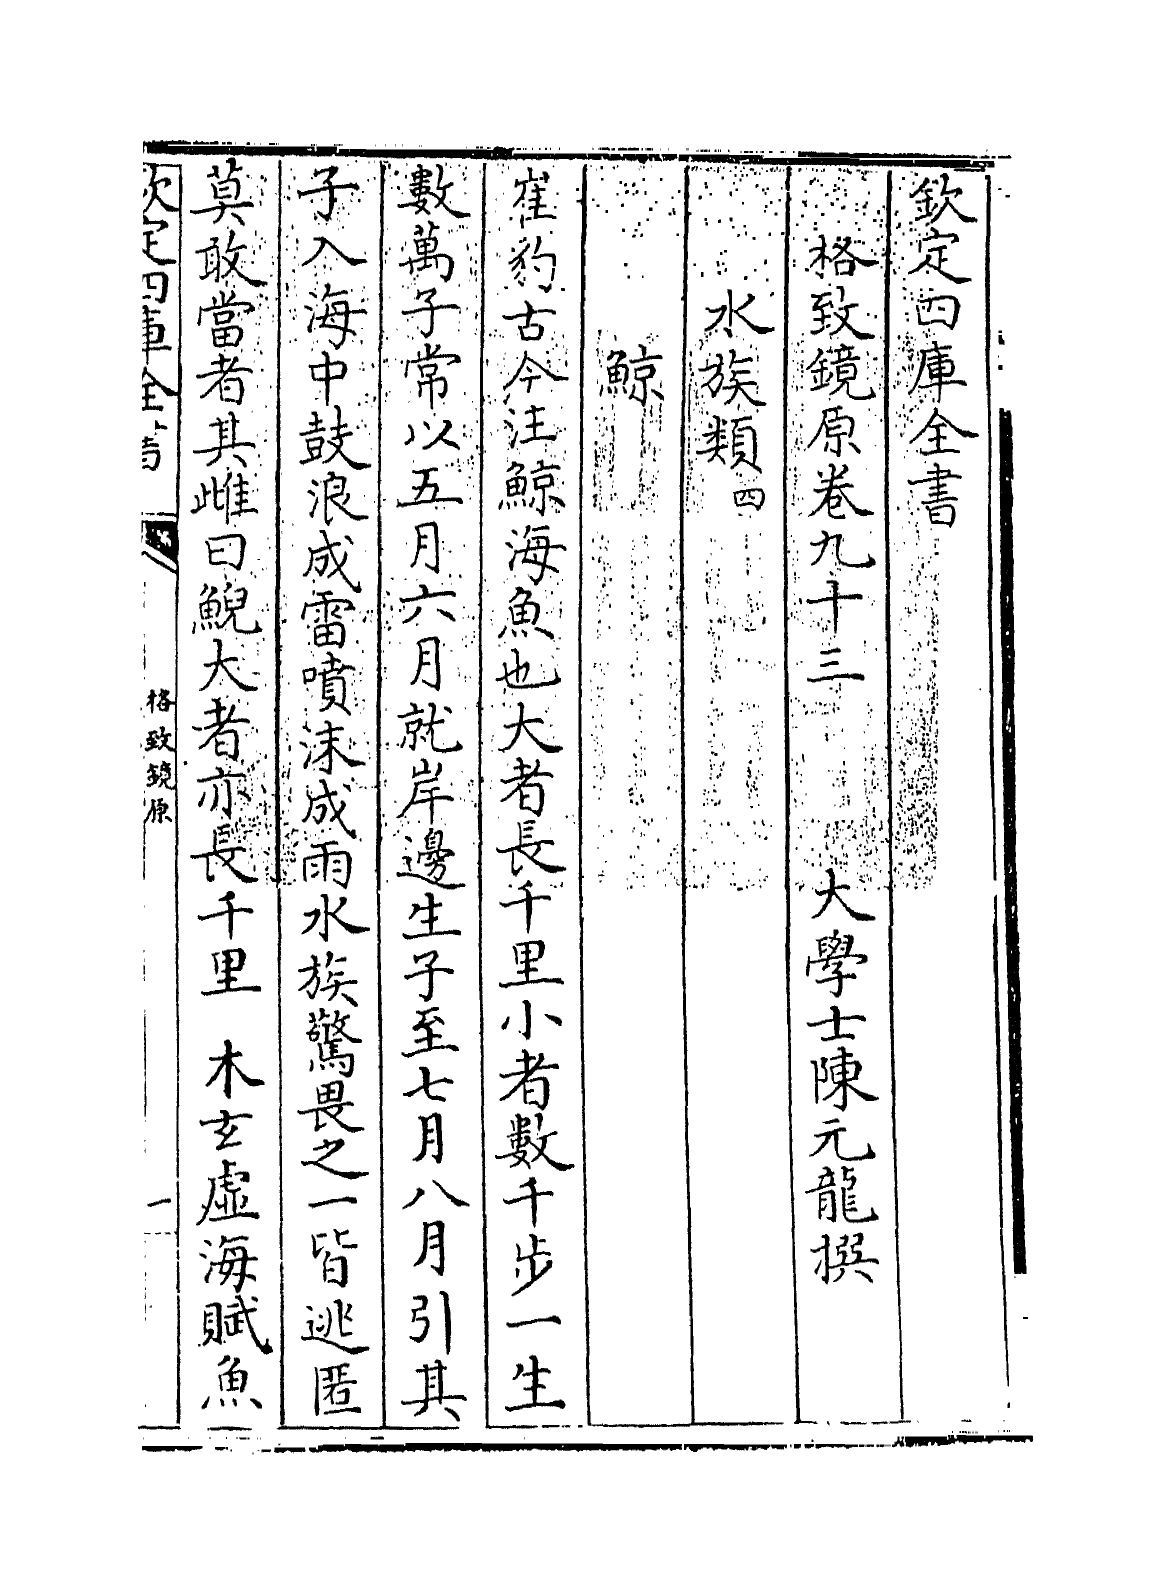 欽定四庫全書
格致鏡原卷九十三　大學士陳元龍撰
水族類四
鯨
崔豹古今注鯨海魚也大者長千里小者數千步一生
數萬子常以五月六月就岸邊生子至七月八月引其
子入海中鼓浪成雷噴沫成雨水族驚畏之一皆逃匿
莫敢當者其雌曰鯢大者亦長千里　木玄虛海賦魚
欽定四庫全書
格致鏡原
一